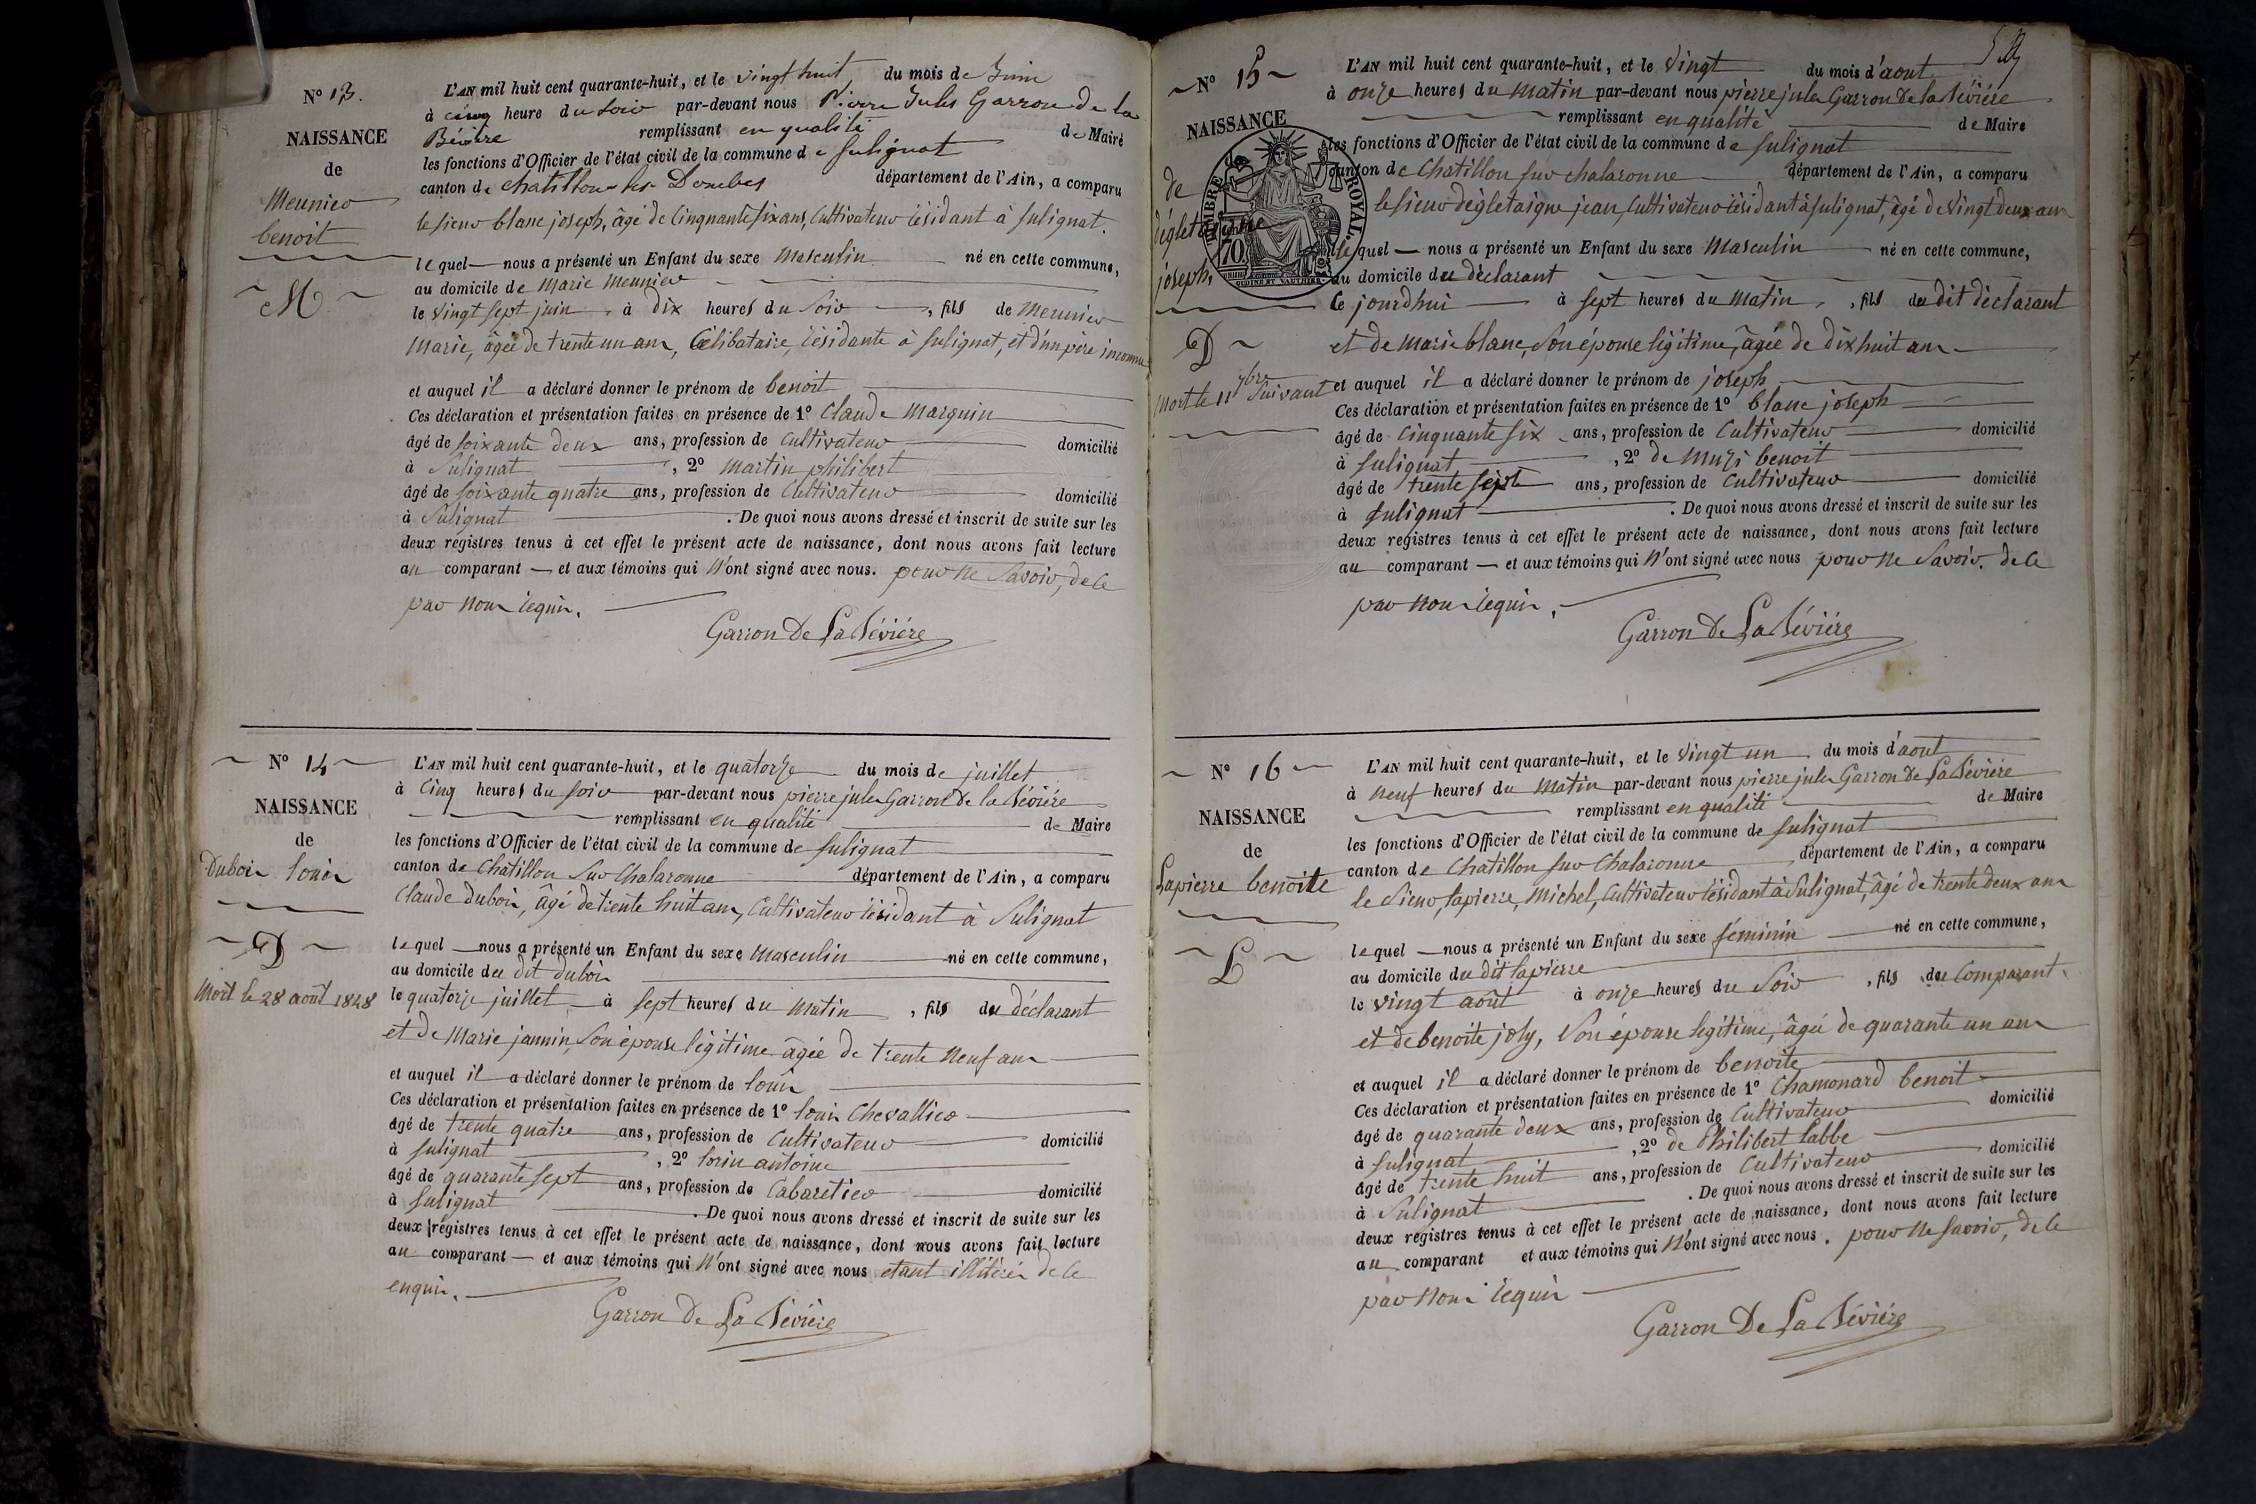 N° 13.
NAISSANCE
de
Meunier
benoit
M
L'AN mil huit cent quarante-huit, et le vingt huit du mois de Juin
à cinq heure du soir par-devant nous Pierre Jules Garron de la
Bévière remplissant en qualité de Maire
les fonctions d'Officier de l'état civil de la commune de sulignat
canton de chatillon les Dombes département de l'Ain, a comparu
le sieur blanc joseph, âgé de Cinquante six ans, Cultivateur résidant à sulignat.
lequel nous a présenté un Enfant du sexe Masculin né en cette commune,
au domicile de Marie Meunier
le vingt sept juin à dix heures du Soir, fils de Meunier
Marie, âgée de trente un ans, Célibataire, résidante à sulignat, et d'un père inconnu
et auquel il a déclaré donner le prénom de benoit
Ces déclaration et présentation faites en présence de 1° Claude Marguin
âgé de soixante deux ans, profession de Cultivateur domicilié
à Sulignat, 2° Martin philibert
âgé de soixante quatre ans, profession de Cultivateur domicilié
à Sulignat. De quoi nous avons dressé et inscrit de suite sur les
deux registres tenus à cet effet le présent acte de naissance, dont nous avons fait lecture
au comparant et aux témoins qui N'ont signé avec nous. pour ne Savoir, de ce
par nous requis.
Garron De La Bévière
N° 14
NAISSANCE
de
Dubois louis
D
Mort le 28 août 1848
L'AN mil huit cent quarante-huit, et le quatorze du mois de juillet
à Cinq heures du soir par-devant nous pierre jules Garron De la Bévière
remplissant en qualité de Maire
les fonctions d'Officier de l'état civil de la commune de sulignat
canton de Chatillon Sur Chalaronne département de l'Ain, a comparu
Claude dubois, âgé de trente huit ans, Cultivateur résidant à Sulignat
lequel nous a présenté un Enfant du sexe Masculin né en cette commune,
au domicile du dit dubois
le quatorze juillet à sept heures du Matin, fils du déclarant
et de Marie jannin, Son épouse légitime âgée de trente Neuf ans
et auquel il a déclaré donner le prénom de louis
Ces déclaration et présentation faites en présence de 1° louis Chevallier
âgé de trente quatre ans, profession de Cultivateur domicilié
à sulignat, 2° lorin antoine
âgé de quarante sept ans, profession de Cabaretier domicilié
à sulignat. De quoi nous avons dressé et inscrit de suite sur les
deux registres tenus à cet effet le présent acte de naissance, dont nous avons fait lecture
au comparant et aux témoins qui N'ont signé avec nous etant illitérés de ce
enquis.
Garron De La Bévière
N° 15
NAISSANCE
de
dégletaigne
joseph,
D
Mort le 11 7bre Suivant
TIMBRE ROYAL.
70
L'AN mil huit cent quarante-huit, et le Vingt du mois d'aout
à onze heures du Matin par-devant nous pierre jules Garron De la Bévière
remplissant en qualité de Maire
les fonctions d'Officier de l'état civil de la commune de sulignat
canton de Chatillon sur chalaronne département de l'Ain, a comparu
le sieur dégletaigne jean, Cultivateur résidant à sulignat, âgé de Vingt deux ans
lequel nous a présenté un Enfant du sexe Masculin né en cette commune,
au domicile du déclarant
Ce jourdhui à sept heures du Matin, fils du dit déclarant
et de Marie blanc, Son épouse légitime, âgée de dix huit ans
et auquel il a déclaré donner le prénom de joseph
Ces déclaration et présentation faites en présence de 1° blanc joseph
âgé de Cinquante six ans, profession de Cultivateur domicilié
à sulignat, 2° de Muzi benoit
âgé de trente sept ans, profession de Cultivateur domicilié
à sulignat. De quoi nous avons dressé et inscrit de suite sur les
deux registres tenus à cet effet le présent acte de naissance, dont nous avons fait lecture
au comparant et aux témoins qui N'ont signé avec nous pour ne Savoir. de ce
par nous requis.
Garron De La Bévière
N° 16
NAISSANCE
de
Lapierre benoite
L
L'AN mil huit cent quarante-huit, et le Vingt un du mois d'aout
à Neuf heures du Matin par-devant nous pierre jules Garron De La Bévière
remplissant en qualité de Maire
les fonctions d'Officier de l'état civil de la commune de sulignat
canton de Chatillon sur Chalaronne département de l'Ain, a comparu
le Sieur, lapierre, Michel, Cultivateur résidant à Sulignat, âgé de trente deux ans
lequel nous a présenté un Enfant du sexe féminin né en cette commune,
au domicile du dit lapierre
le vingt août à onze heures du Soir, fils du Comparant
et de benoite joly, Son épouse legitime, âgée de quarante un ans
et auquel il a déclaré donner le prénom de benoite
Ces déclaration et présentation faites en présence de 1° Chamonard benoit
âgé de quarante deux ans, profession de Cultivateur domicilié
à sulignat, 2° de Philibert labbe
âgé de trente huit ans, profession de Cultivateur domicilié
à Sulignat. De quoi nous avons dressé et inscrit de suite sur les
deux registres tenus à cet effet le présent acte de naissance, dont nous avons fait lecture
au comparant et aux témoins qui N'ont signé avec nous. pour ne Savoir, de ce
par nous requis
Garron De La Bévière